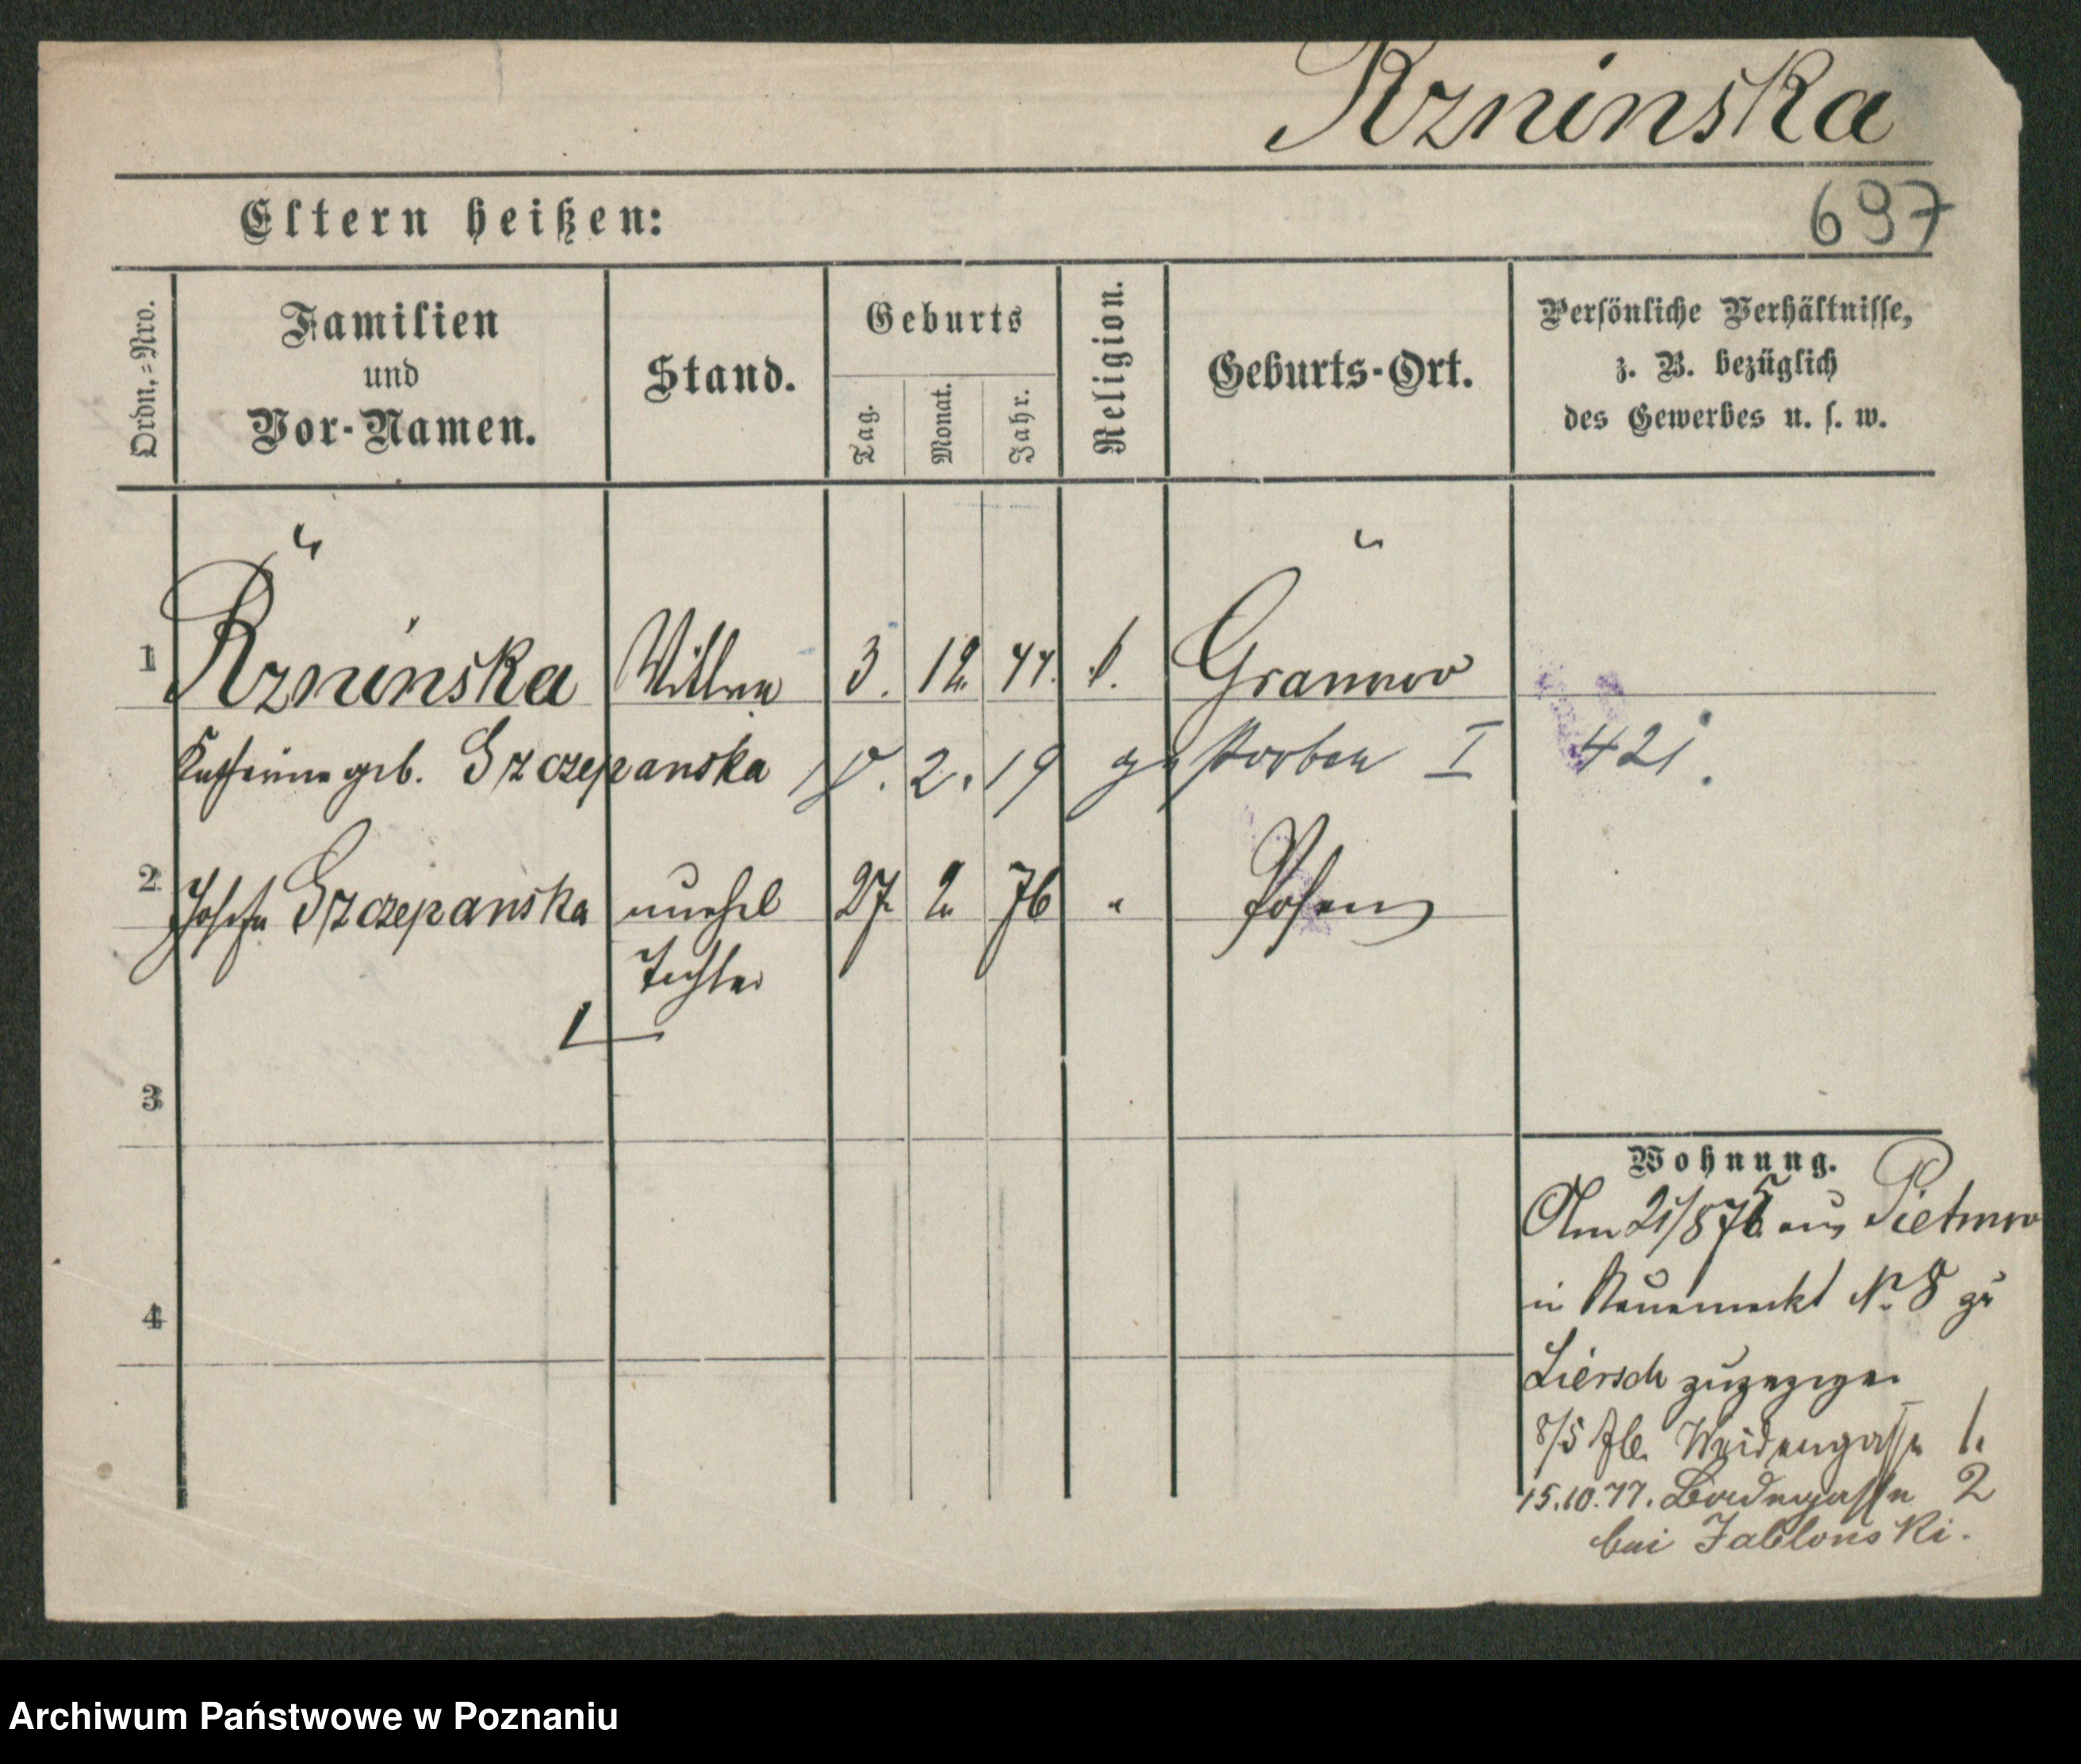 Rzninska
697
Eltern heißen:
Ordn.-Nro.
Familien
und
Vor-Namen.
Stand.
Geburts
Tag.
Monat.
Jahr.
Religion.
Geburts-Ort.
Persönliche Verhältnisse,
z. B. bezüglich
des Gewerbes u. s. w.
1 Rzninska 3. 12. 44. k.
geb. Szczepanska 2. 19 gestorben I 421.
2 Josefa Szczepanska unehel 27. 2. 76 " Posen
Tochter
3
4
Wohnung.
Am 21/8 75 aus
in No 8 zu
Liersch zugezogen
8/5 76. Weidengasse 1.
15.10.77. 2
bei Jablonski.
Archiwum Państwowe w Poznaniu